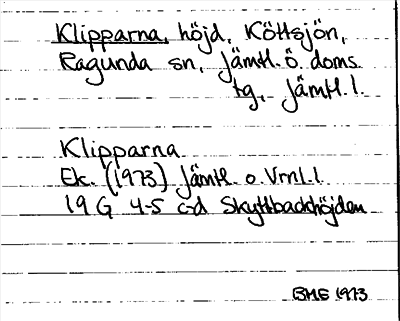 Klipparna, höjd, Köttsjön,
Ragunda sn, Jämtl. ö. doms.
tg, Jämtl. l.
Klipparna
Ek. (1973) Jämtl. o. Vrnl. l.
19 G 4-5 c-d Skyttbackhöjden
BME 1973